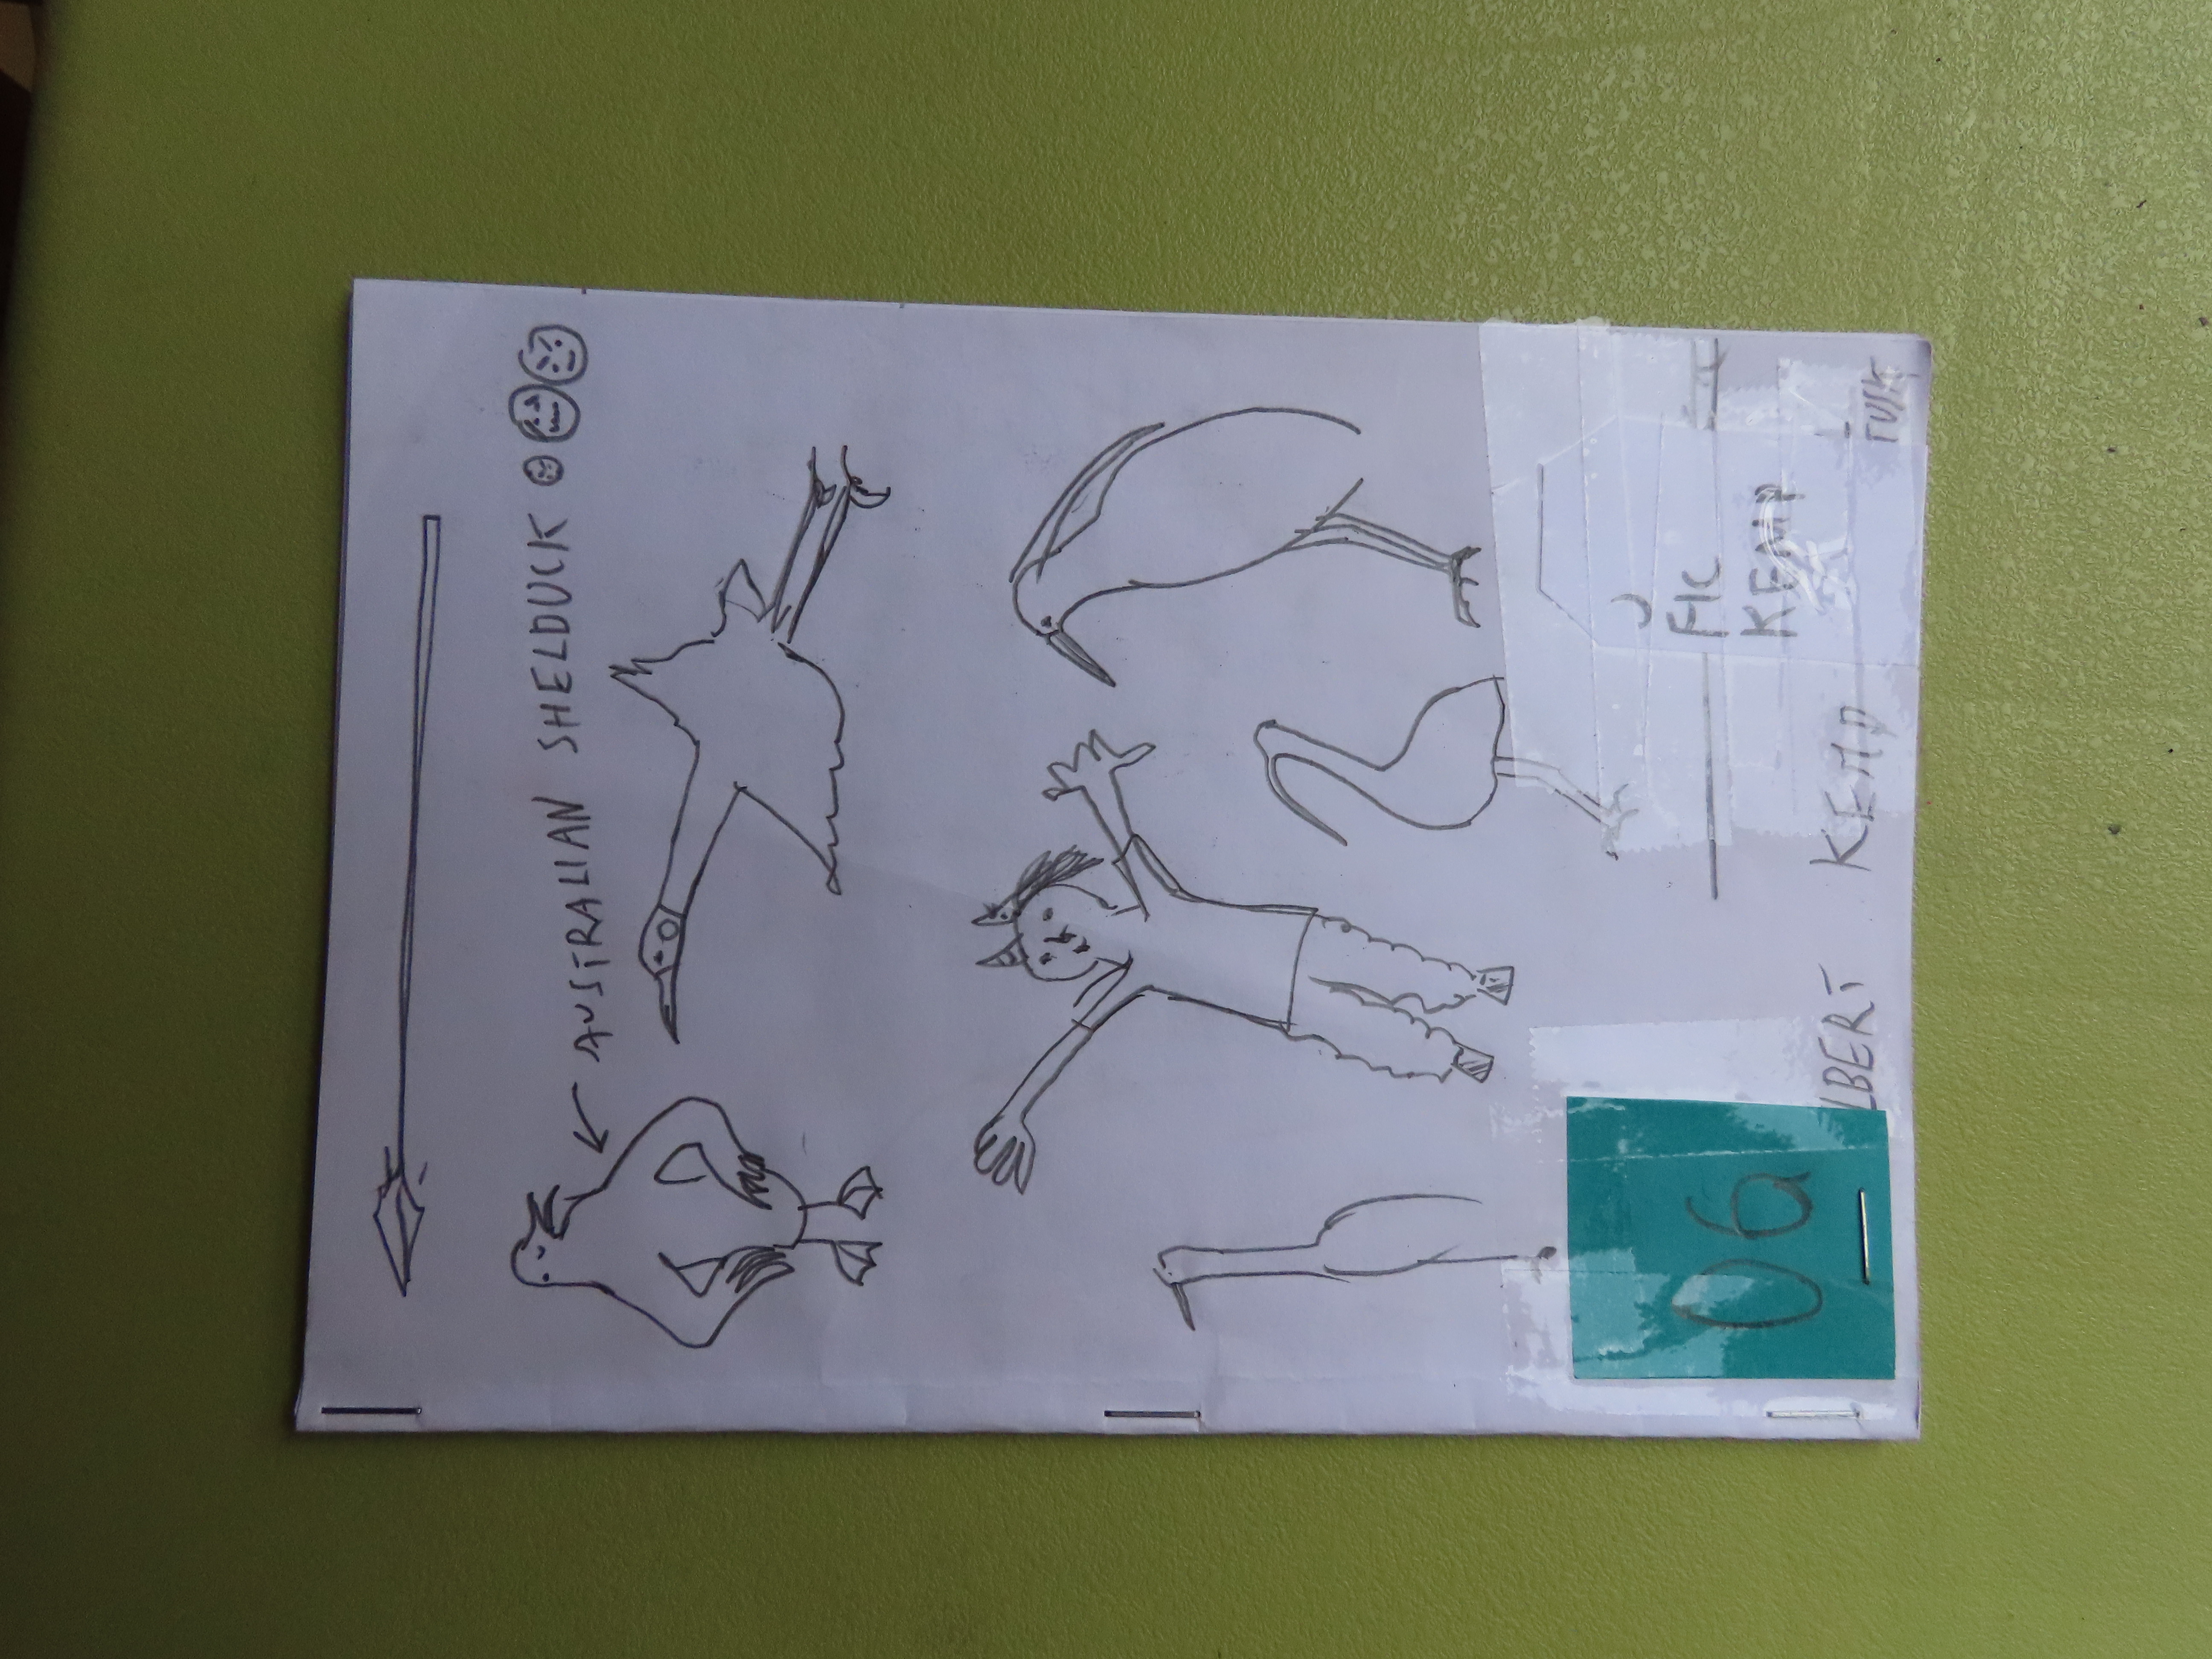 AUSTRALIAN SHELDUCK
J
FIC
KEMP
LBERT KEMP
06